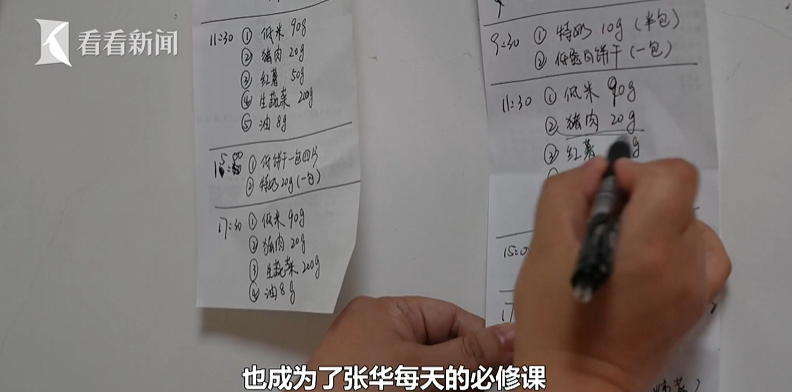 看看新闻
11:30 ① 低米 90g
② 猪肉 20g
③ 红薯 50g
④ 生蔬菜 200g
⑤ 油 8g
① 低饼干一包四片
② 特奶 20g (一包)
17:30 ① 低米 90g
② 猪肉 20g
③ 生蔬菜 200g
④ 油 8g
9:30 ① 特奶 10g (半包)
② 低蛋白饼干 (一包)
11:30 ① 低米 90g
② 猪肉 20g
③ 红薯 g
15:0
17
也成为了张华每天的必修课